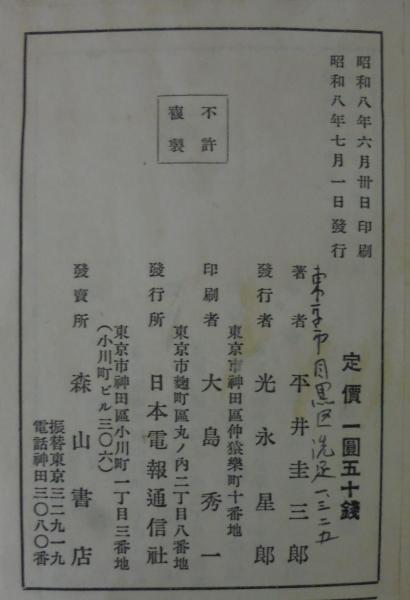 昭和八年六月卅日印刷
昭和八年七月一日發行
不許
複製
定價一圓五十錢
東京市目黒区洗足一、三二五
著者 平井圭三郎
發行者 光永星郎
東京市神田區仲猿樂町十番地
印刷者 大島秀一
東京市麴町區丸ノ内二丁目八番地
發行所 日本電報通信社
東京市神田區小川町一丁目三番地
(小川町ビル三〇六)
發賣所 森山書店
振替東京三二九一九
電話神田三〇八〇番